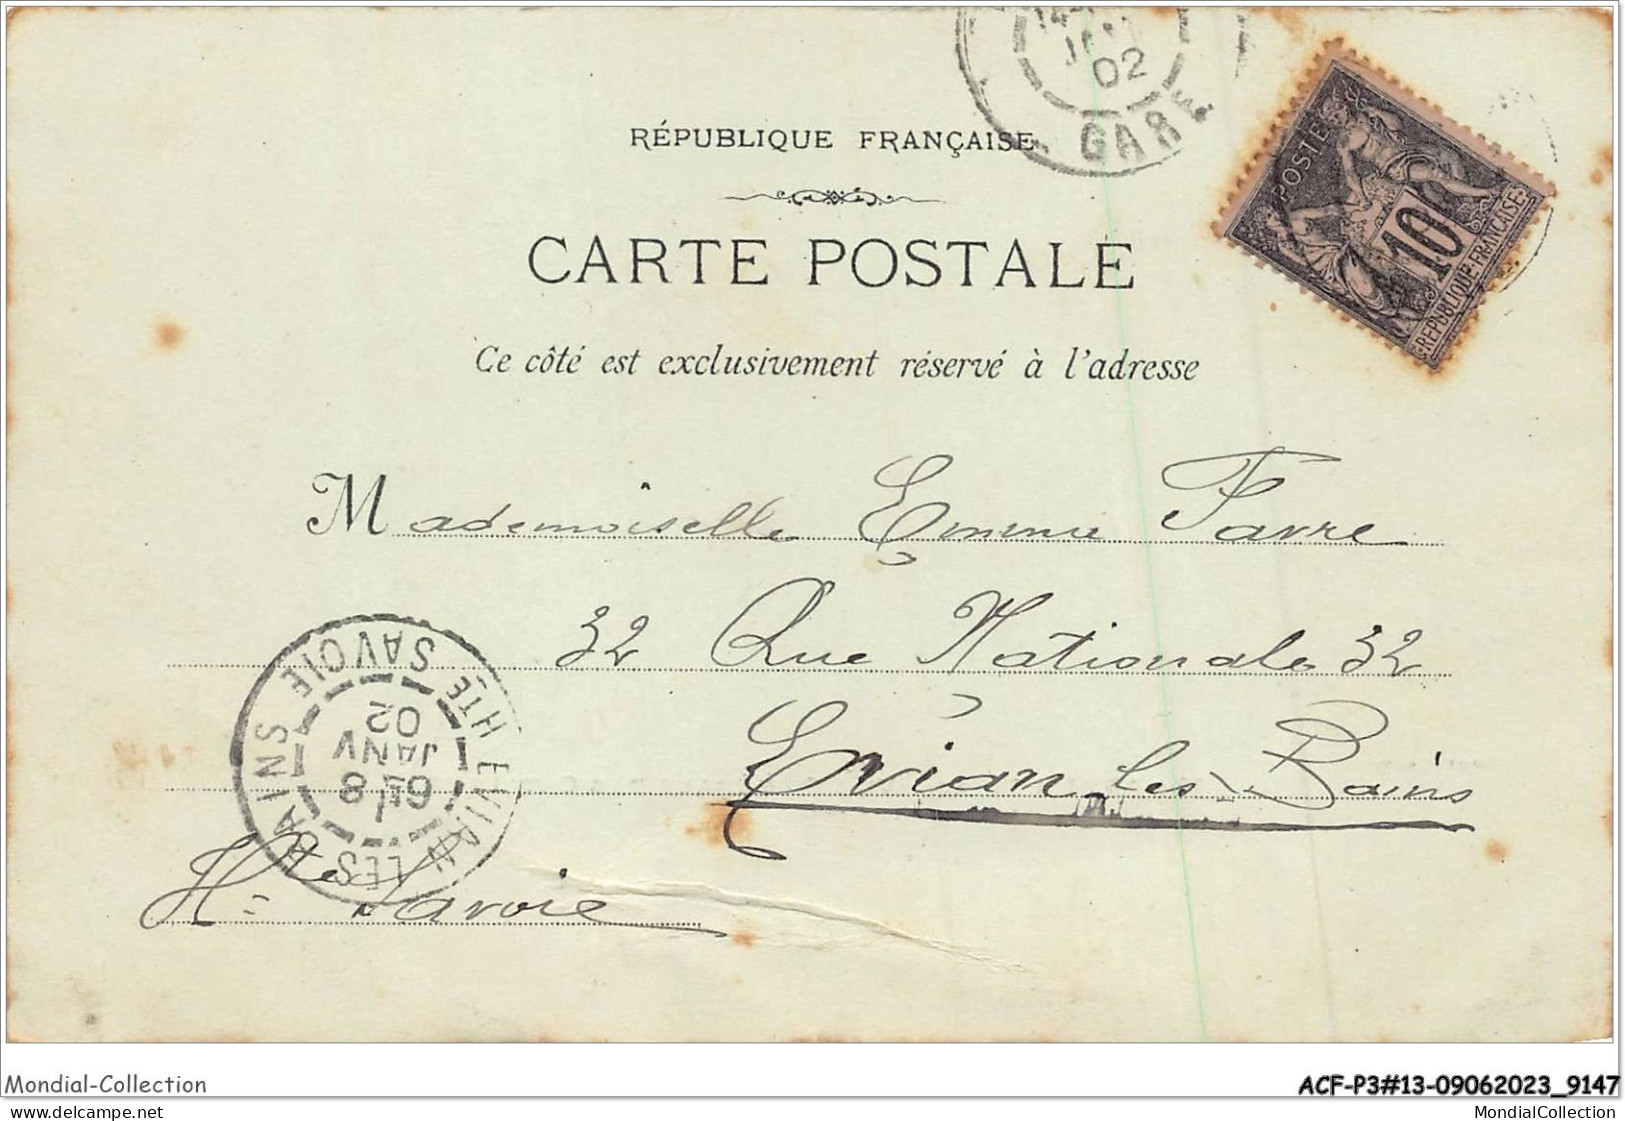 02
GARE
POSTE
10
REPUBLIQUE FRANÇAISE
RÉPUBLIQUE FRANÇAISE
CARTE POSTALE
Ce côté est exclusivement réservé à l'adresse
Mademoiselle Emma Favre
32 Rue Nationale 32
Evian les Bains
Hte Savoie
EVIAN LES BAINS
HTE SAVOIE
JANV
02
Mondial-Collection
ACF-P3#13-09062023_9147
MondialCollection